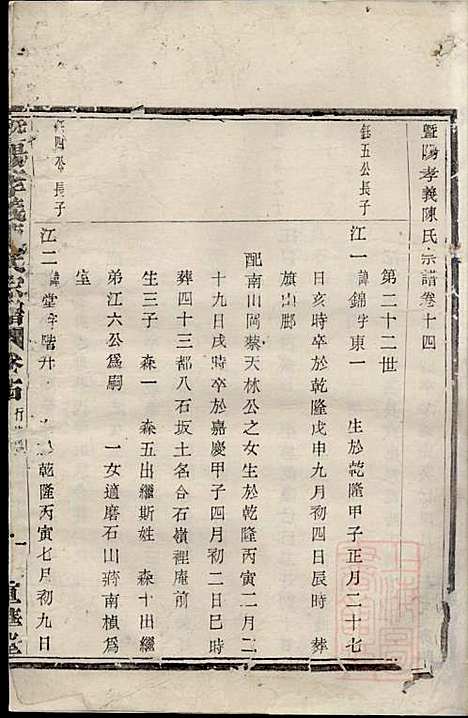 暨陽孝義陳氏宗譜卷十四
第二十二世
鈺五公長子
江一諱錦字東一 生於乾隆甲子正月二十七
日亥時卒於乾隆戊申九月初四日辰時 葬
旗山郡
配南山岡蔡天林公之女生於乾隆丙寅二月二
十九日戌時卒於嘉慶甲子四月初二日巳時
葬四十三都八石坂土名合石嶺裡庵前
生三子 森一 森五出繼斯姓 森十出繼
弟江六公為嗣 一女適磨石山蔣南楨為
室
鈺四公長子
江二諱堂字階升 乾隆丙寅七月初九日